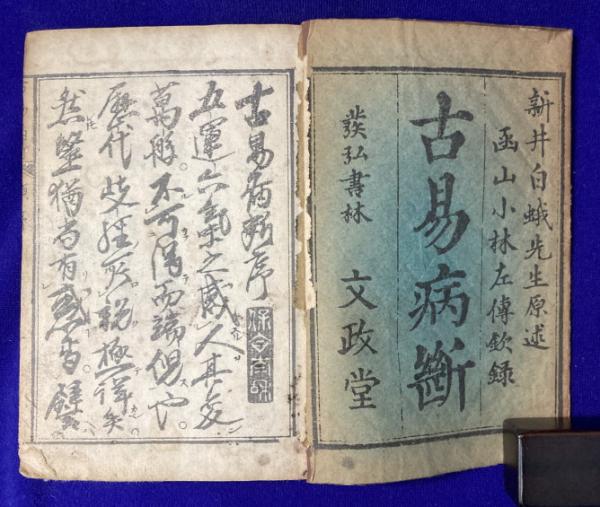 新井白蛾先生原述
函山小林左傳欽録
古易病斷
發弘書林 文政堂
古易病斷序
五運六氣之感人其變
萬殊不可得而端倪也
歷代岐經所說極詳矣
然猶尚有